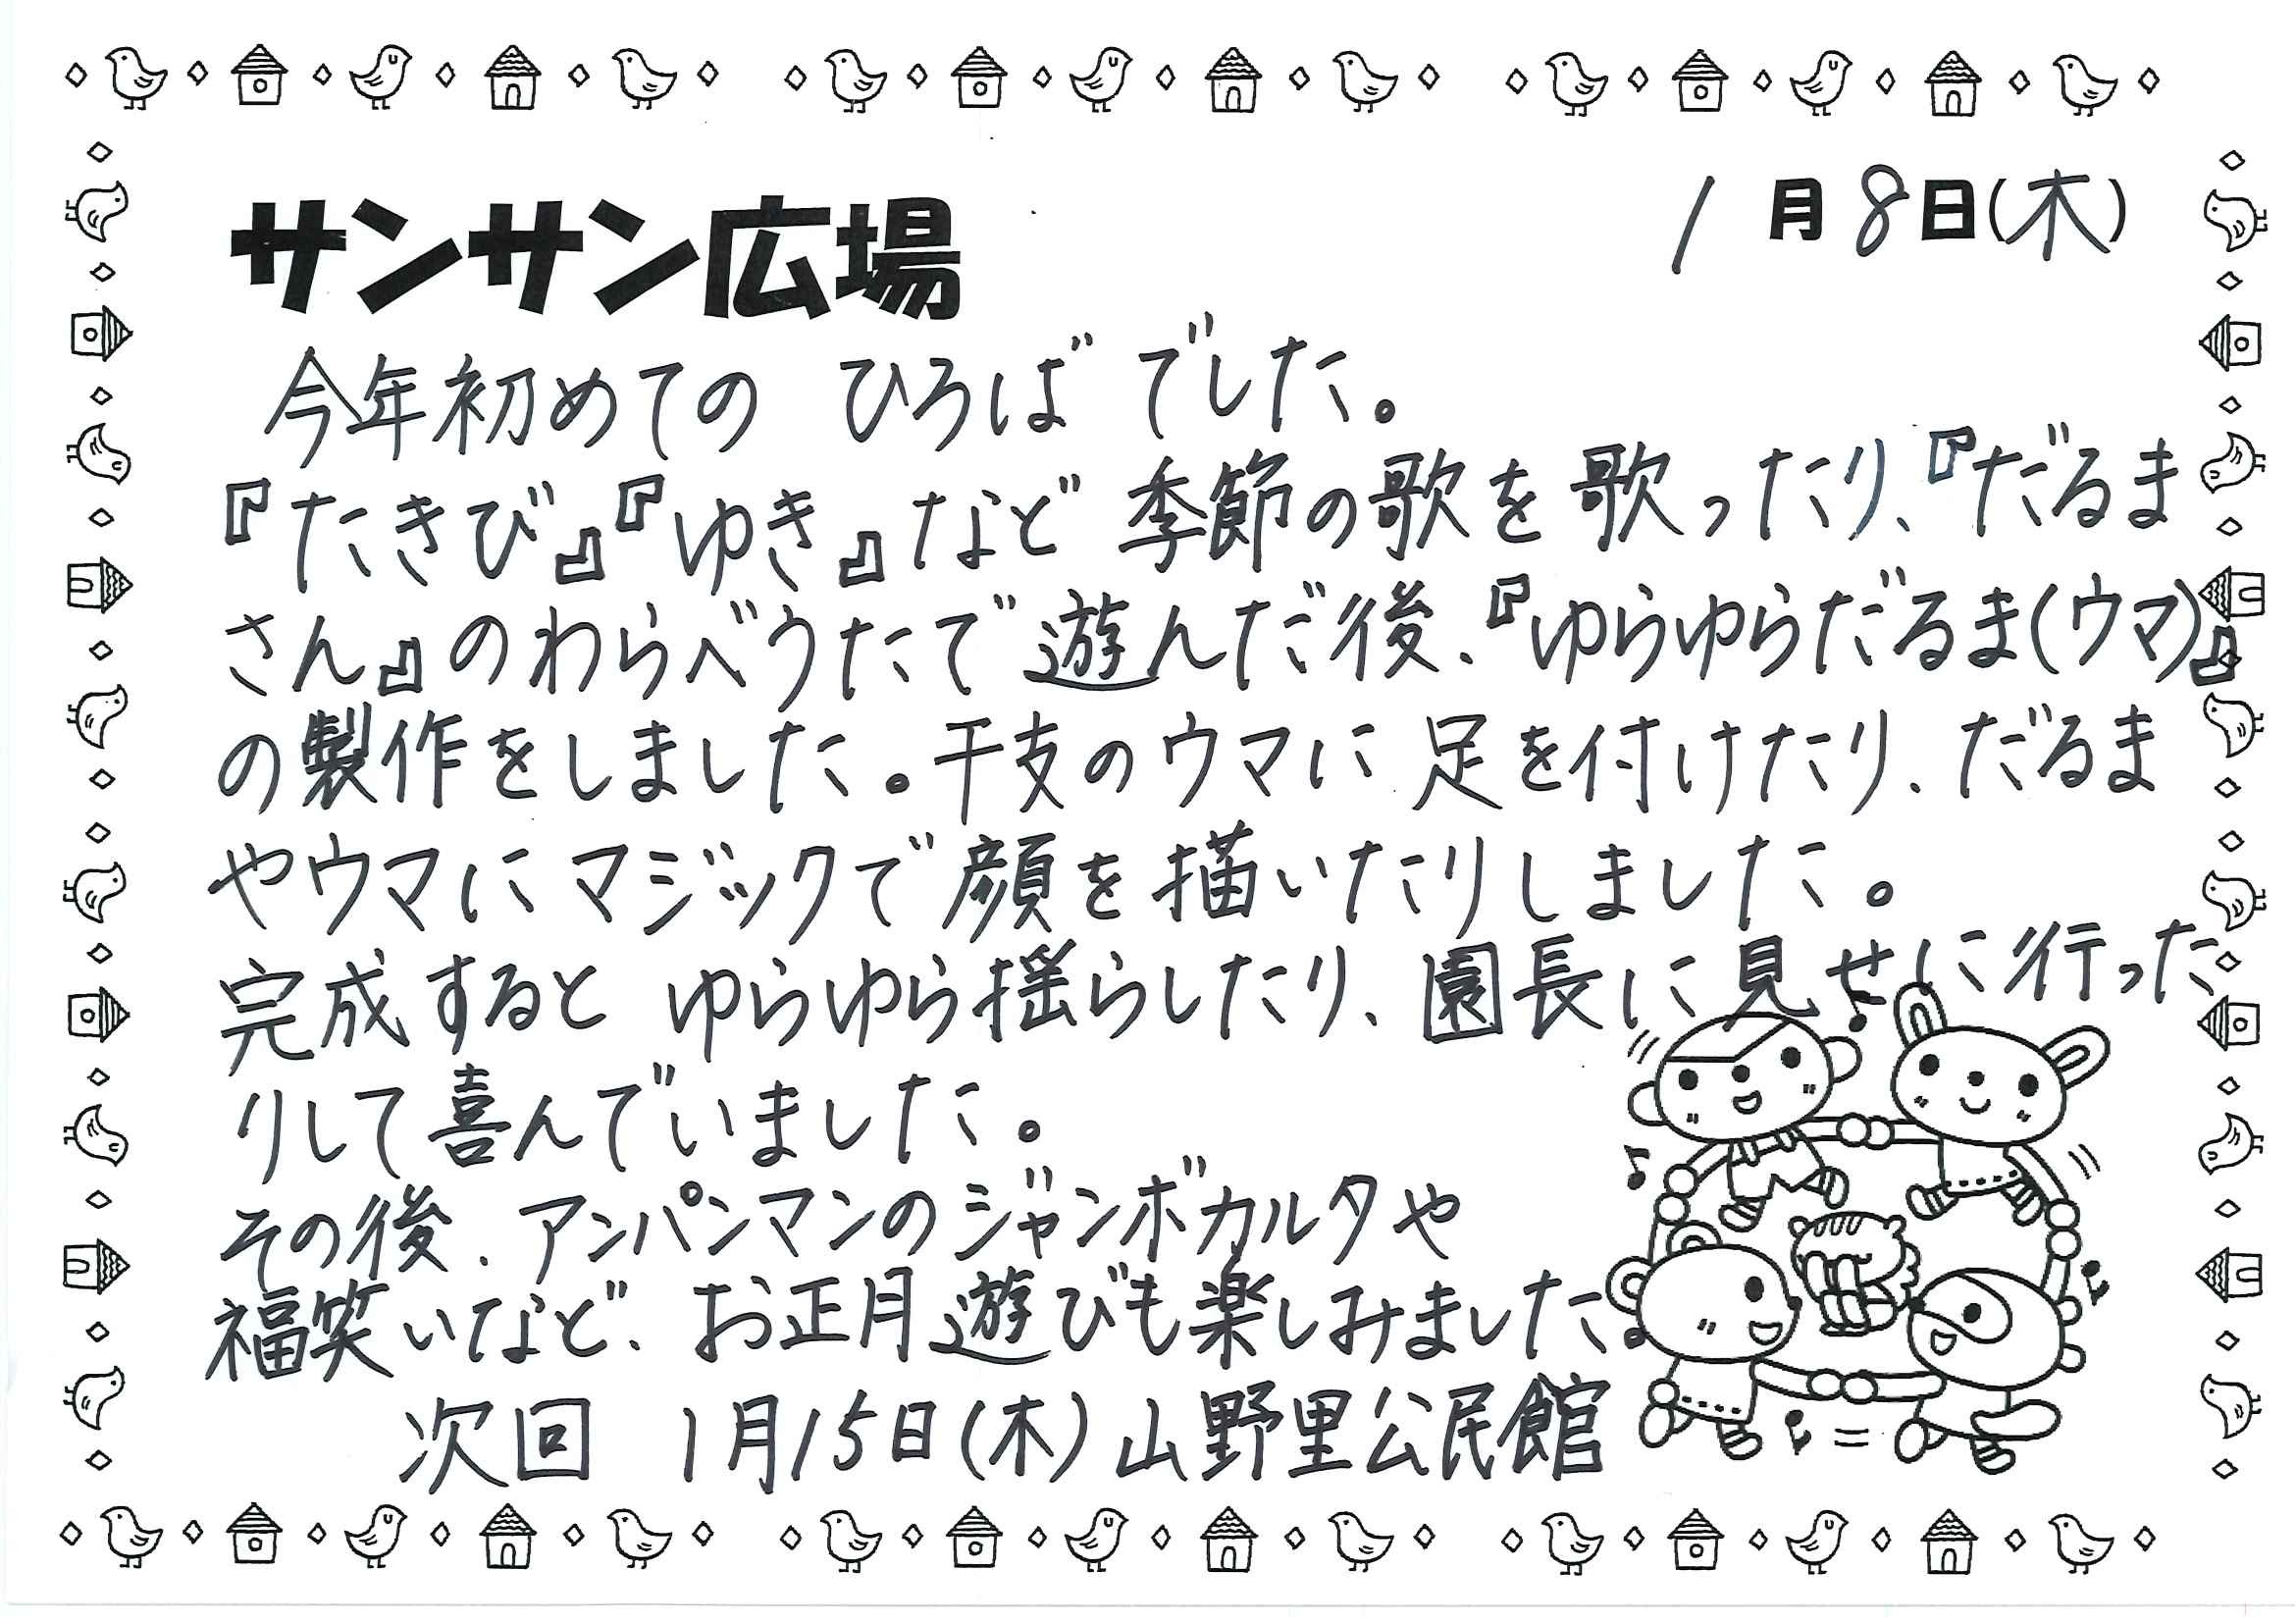 サンサン広場
1月8日(木)
今年初めての ひろばでした。
『たきび』『ゆき』など季節の歌を歌ったり、『だるま
さん』のわらべうたで遊んだ後、『ゆらゆらだるま(ウマ)』
の製作をしました。干支のウマに足を付けたり、だるま
やウマにマジックで顔を描いたりしました。
完成すると ゆらゆら揺らしたり、園長に見せに行った
りして喜んでいました。
その後、アンパンマンのジャンボカルタや
福笑いなど、お正月遊びも楽しみました。
次回 1月15日(木)山野里公民館